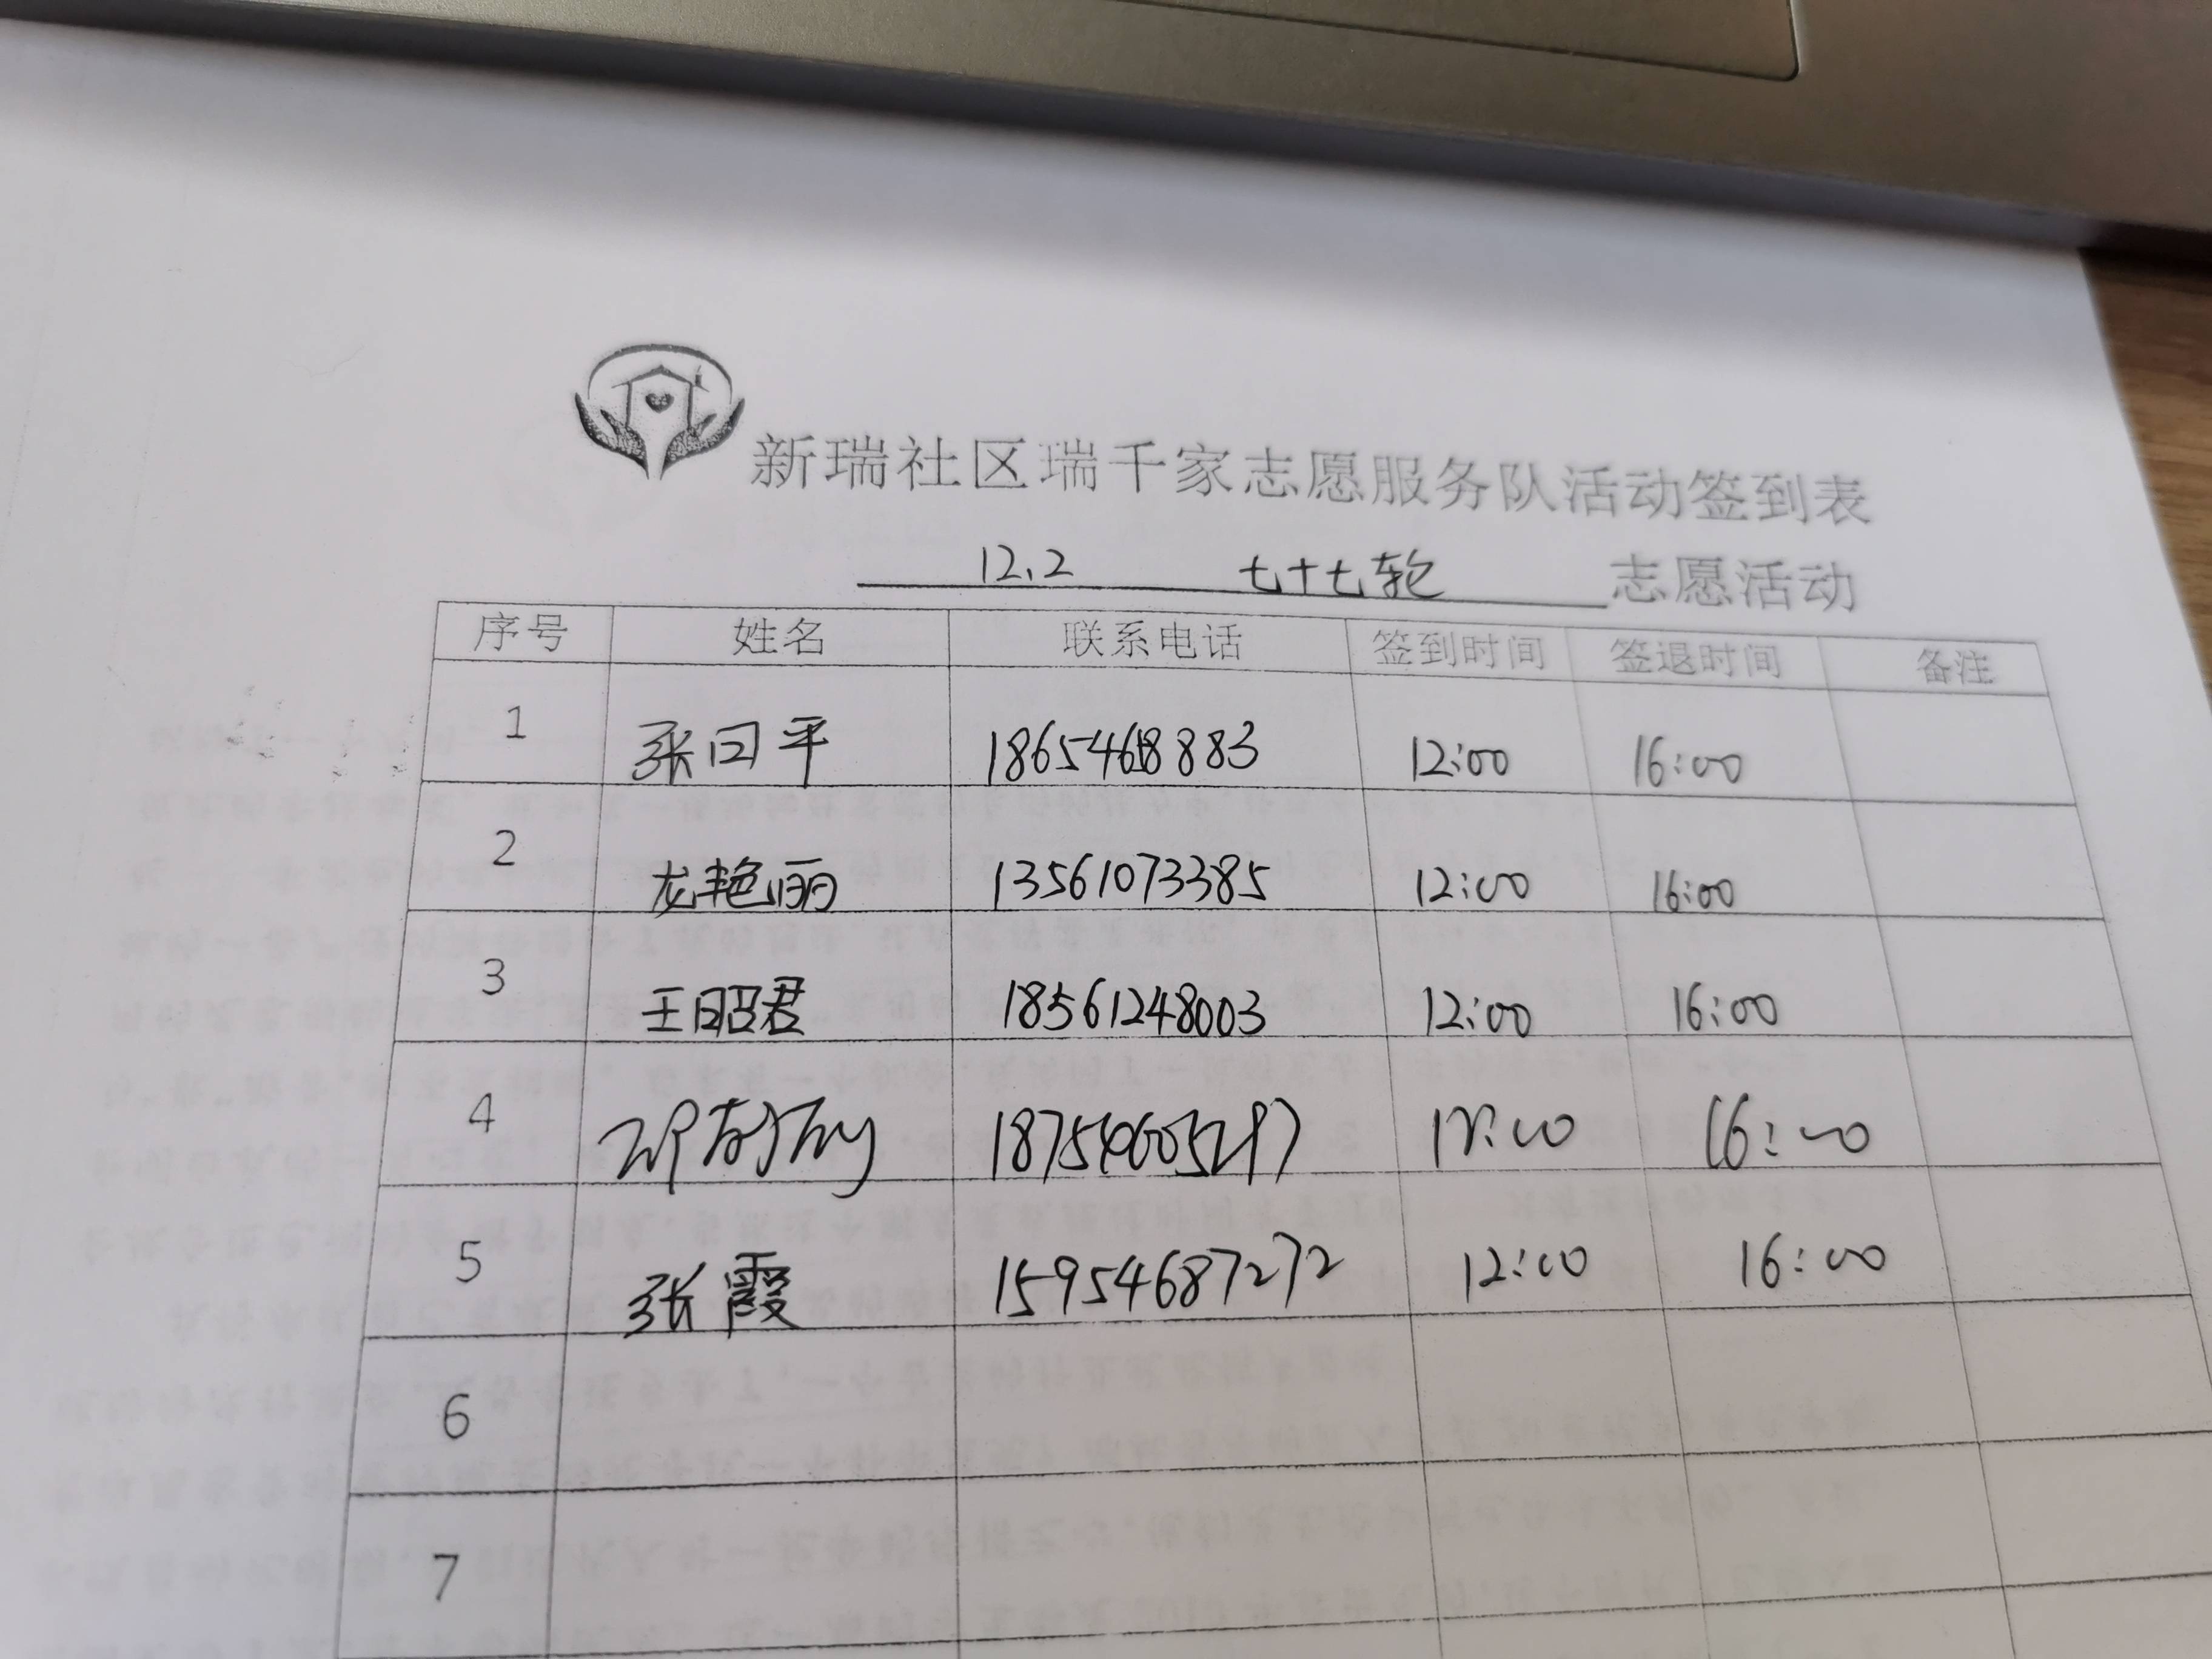 新瑞社区瑞千家志愿服务队活动签到表
12.2 七十七轮 志愿活动
序号 姓名 联系电话 签到时间 签退时间 备注
1 张曰平 12:00 16:00
2 龙艳丽 13561073385 12:00 16:00
3 王昭君 18561248003 12:00 16:00
4 12:00 16:00
5 张霞 15954687272 12:00 16:00
6
7